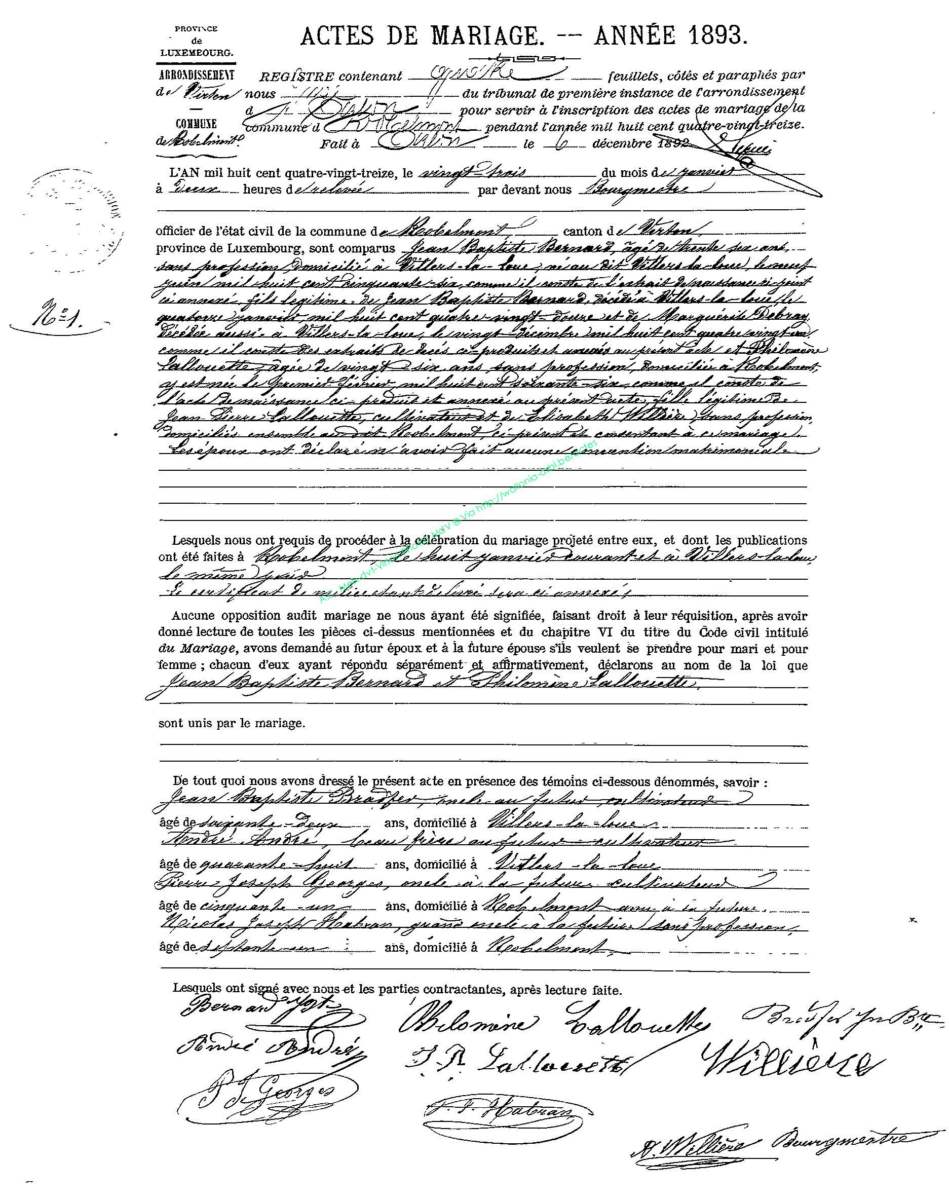 PROVINCE
de
LUXEMBOURG.
ARRONDISSEMENT
de Virton
COMMUNE
de Robelmont
ACTES DE MARIAGE. -- ANNÉE 1893.
REGISTRE contenant quatre feuillets, côtés et paraphés par
nous du tribunal de première instance de l'arrondissement
d pour servir à l'inscription des actes de mariage de la
commune d Robelmont pendant l'année mil huit cent quatre-vingt-treize.
Fait à le 6 décembre 1892
L'AN mil huit cent quatre-vingt-treize, le vingt trois du mois de janvier
à deux heures de relevée par devant nous Bourgmestre
officier de l'état civil de la commune de Robelmont, canton de Virton,
province de Luxembourg, sont comparus Jean Baptiste Bernard, âgé de trente six ans,
sans profession, domicilié à Villers-la-loue, né au dit Villers-la-loue, le neuf
juin mil huit cent cinquante-six, comme il conste de l'extrait de naissance ci-joint
ci annexé, fils légitime de Jean Baptiste Bernard, décédé à Villers-la-loue, le
quatorze janvier mil huit cent quatre vingt douze et de Marguérite Debray
décédée aussi à Villers-la-loue, le vingt décembre mil huit cent quatre vingt un
comme il conste des extraits de décès ci-produits et annexés au présent acte et Philomène
Lallouette, âgée de vingt-six ans, sans profession, domiciliée à Robelmont,
y est née le premier février mil huit cent soixante-six, comme il conste de
l'acte de naissance ci-produit et annexé au présent acte, fille légitime de
Jean Pierre Lallouette, cultivateur et de Elisabeth Willière, sans profession
domiciliés ensemble au dit Robelmont, ci-présent et consentant à ce mariage.
Les époux ont déclaré n'avoir fait aucune convention matrimoniale
N° 1.
Lesquels nous ont requis de procéder à la célébration du mariage projeté entre eux, et dont les publications
ont été faites à Robelmont, le huit janvier courant et à Villers-la-loue
le même jour
Le certificat de milice étant délivré sera ci annexé
Aucune opposition audit mariage ne nous ayant été signifiée, faisant droit à leur réquisition, après avoir
donné lecture de toutes les pièces ci-dessus mentionnées et du chapitre VI du titre du Code civil intitulé
du Mariage, avons demandé au futur époux et à la future épouse s'ils veulent se prendre pour mari et pour
femme ; chacun d'eux ayant répondu séparément et affirmativement, déclarons au nom de la loi que
Jean Baptiste Bernard et Philomène Lallouette,
sont unis par le mariage.
De tout quoi nous avons dressé le présent acte en présence des témoins ci-dessous dénommés, savoir :
Jean Baptiste Bradfer, oncle au futur, cultivateur
âgé de soixante-deux ans, domicilié à Villers-la-loue
André André, beau frère au futur cultivateur
âgé de quarante-huit ans, domicilié à Villers-la-loue
Pierre Joseph Georges, oncle à la future cultivateur
âgé de cinquante-un ans, domicilié à Robelmont à la future.
Nicolas Joseph Habran, grand oncle à la future sans profession,
âgé de septante-un ans, domicilié à Robelmont,
Lesquels ont signé avec nous et les parties contractantes, après lecture faite.
Bernard Philomène Lallouette Bradfer Jn Btte
André André J. P. Lallouette Willière
P J Georges Habran
Willière Bourgmestre